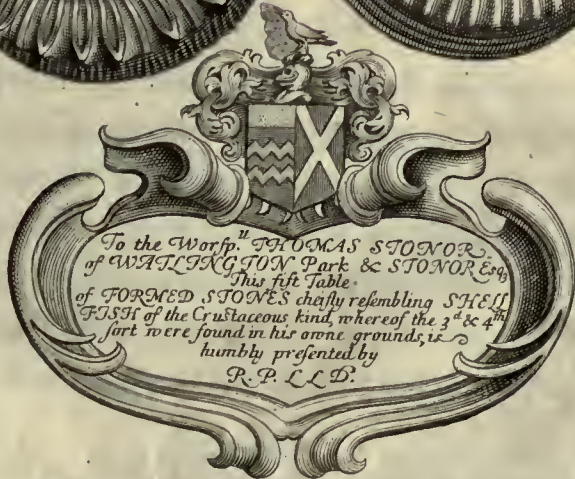 To the Worſp.ll THOMAS STONOR
of WATLINGTON Park & STONOR Eſqꝫ
This fift Table
of FORMED STONES cheifly reſembling SHELL
FISH of the Cruſtaceous kind, whereof the 3d & 4th
ſort were found in his owne grounds, is
humbly preſented by
R. P. L L D.